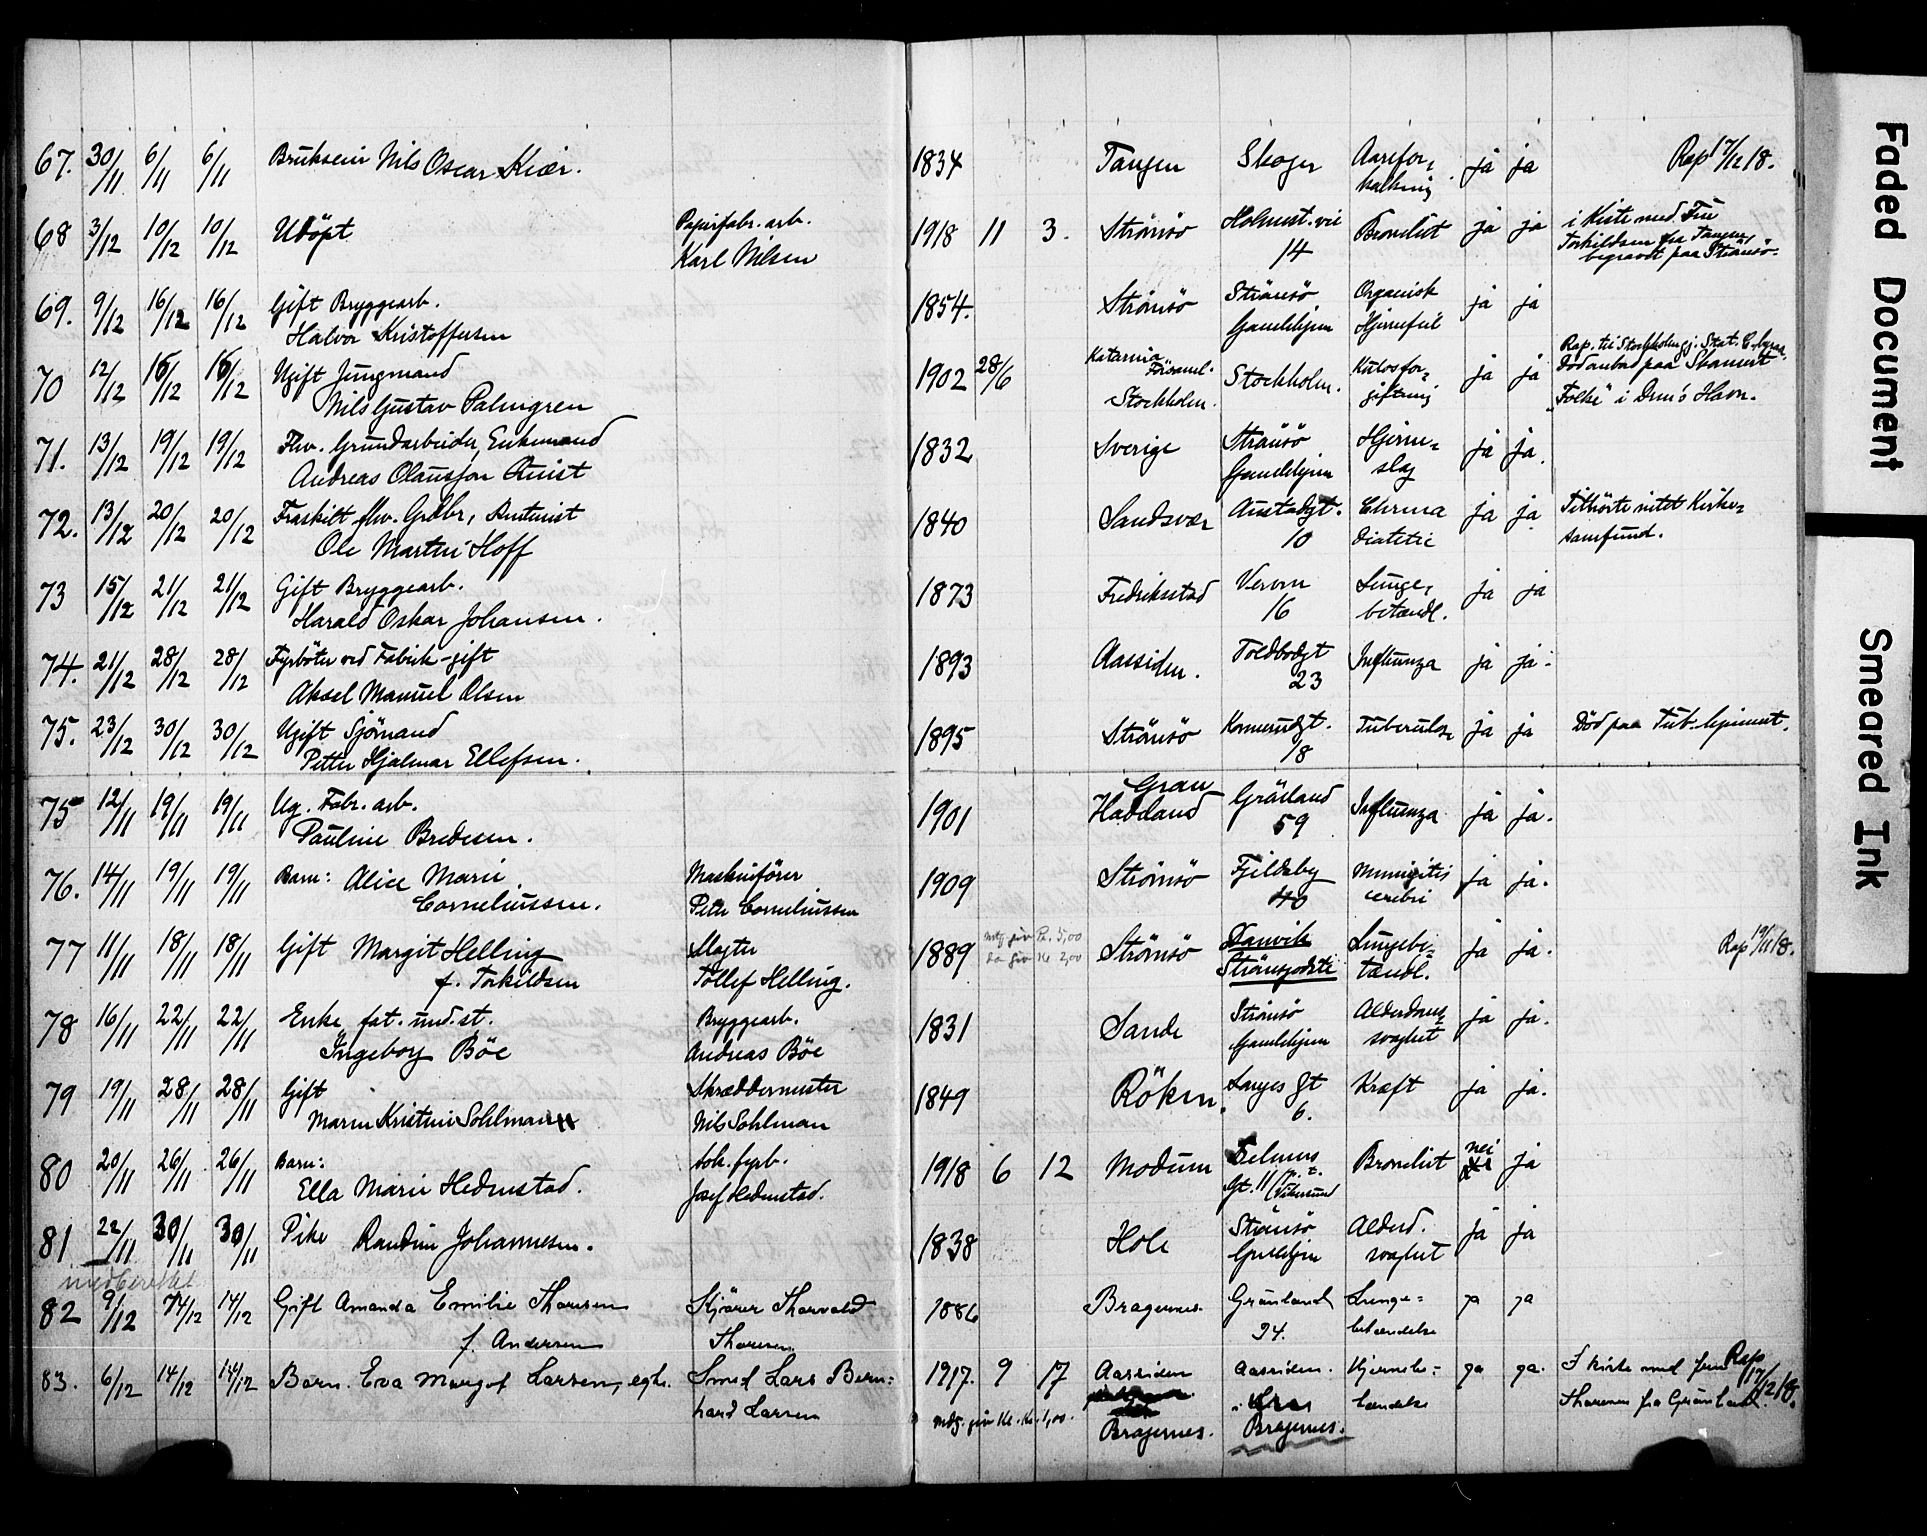 67. 30/11 6/11 6/11 Brukseier Nils Oscar Kiær. 1834 Tangen Skoger Aarefor- ja ja Rap 17/12 18.
kalkning
68 3/12 10/12 10/12 Udöpt Papirfabr. arb. 1918 11 3. Strömsö Holmest. vei Bronchit ja ja i Kiste med Fru
Karl Nilsen 14 Torkildsen fra Tangen
begravet paa Strömsö.
69. 9/12 16/12 16/12 Gift Bryggearb. 1854. Strömsö Strömsö Organisk ja ja
Halvor Kristoffersen Gamlehjem Hjernefeil
70 12/12 16/12 16/12 Ugift Jungmand 1902 28/6 Katarina Församl. Stockholm. Kulosfor- ja ja Rap. til Stockholm gj. Stat. C. byraa.
Nils Gustav Palmgren Stockholm. giftning Död ombord paa Skonnert
"Folke" i Drm's Havn.
71. 13/12 19/12 19/12 Fhv. Grundarbeider, Enkemand 1832 Sverige Strömsö Hjerne- ja ja.
Andreas Olausson Quist Gamlehjem slag
72. 13/12 20/12 20/12 Fraskilt fhv. Grdbr., Rentenist 1840 Sandsvær Austadgt. ja ja Tilhörte intet Kirke-
Ole Martin Hoff 10 samfund.
73 15/12 21/12 21/12 Gift Bryggearb. 1873 Fredriksstad 16 Lunge- ja ja
Harald Oskar Johansen. betændl.
74. 21/12 28/12 28/12 Fyrböter ved Fabrik - gift 1893 Aassiden. Toldbodgt Influenza ja ja.
Aksel Manuel Olsen 23
75. 23/12 30/12 30/12 Ugift Sjömand 1895 Strömsö Konnerudgt. Tuberculose ja ja Död paa Tub. hjemmet.
Petter Hjalmar Ellefsen. 18
75 12/11 19/11 19/11 Ug. Fabr. arb. 1901 Gran Grönland Influenza ja ja.
Pauline Bredesen. Hadeland 59
76. 14/11 19/11 19/11 Barn: Alice Marie Maskinförer 1909 Strömsö Fjeldsby Meningitis ja ja.
Corneliussen. Peter Corneliussen 40 cerebri
77 11/11 18/11 18/11 Gift Margit Helling Slagter 1889 Mtg. giv Kr. 5,00 Strömsö Danvik Lungebe- ja ja. Rap 19/11 18.
f. Torkildsen Tollef Helling. giv Kr 2,00 Strömsgodset tændl.
78 16/11 22/11 22/11 Enke, fat. und. st. Bryggearb. 1831 Sande Strömsö Alderdoms- ja ja.
Ingeborg Böe Andreas Böe Gamlehjem svaghet
79 19/11 28/11 28/11 Gift Skræddermester 1849 Röken. Langes Gt Kræft ja ja.
Maren Kristine Sohlman Nils Sohlman 6.
80 20/11 26/11 26/11 Barn: Lok. fyrb. 1918 6 12 Modum Telmers Bronchit nei ja
Ella Marie Hedenstad. Josef Hedenstad. Gt. 11 (Vikersund
81 22/11 30/11 30/11 Pike Randine Johannesen. 1838 Hole Strömsö Alderd. ja ja
Gamlehjem svaghet
medberettet
82 9/12 14/12 14/12 Gift Amanda Emilie Thoresen Kjörer Thorvald 1886 Bragernes. Grönland Lunge- ja ja
f. Andersen Thoresen 94. betændelse
83. 6/12 14/12 14/12 Barn. Eva Margot Larsen, egte. Smed Lars Bern- 1917. 9 17 Aassiden Aassiden. Hjernebe- ja ja. I kiste med fru Rap 17/12 18.
hard Larsen Mtg. giv Kl. Kr. 1,00. tændelse Thoresen fra Grönland.
Bragernes. Bragernes.
Faded Document
Smeared Ink